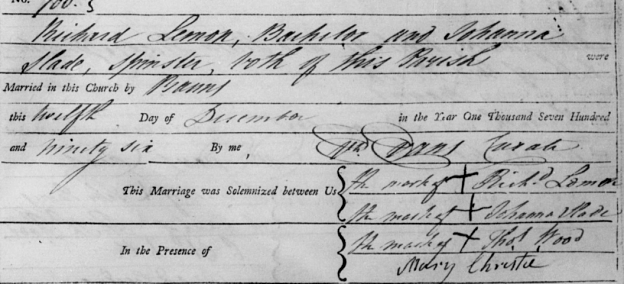 No. 700.
Richard Lemon, Bachelor and Johanna
Slade, Spinster, both of this Parish were
Married in this Church by Banns
this twelfth Day of December in the Year One Thousand Seven Hundred
and ninety six By me, Evans Curate
This Marriage was Solemnized between Us the mark of + Richd. Lemon
the mark of + Johanna Slade
In the Presence of the mark of + Thos. Wood
Mary Christie